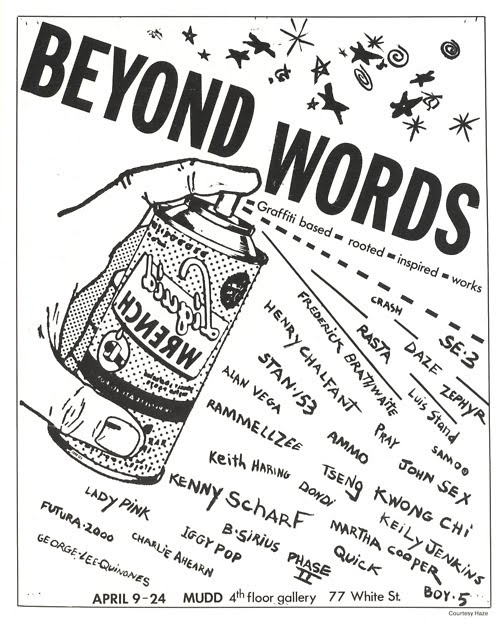 BEYOND
WORDS
Graffiti based - rooted - inspired - works
Liquid
WRENCH
CRASH
SE:3
RASTA
DAZE
ZEPHYR
FREDERICK BRATHWAITE
HENRY CHALFANT
Luis Stand
STAN·153
PRAY
SAMO©
ALAN VEGA
AMMO
JOHN SEX
RAMMELLZEE
TSENG KWONG CHI
Keith HARING
DONDI
KEILY JENKINS
KENNY SCHARF
MARTHA COOPER
LADY PINK
B·SIRIUS
QUICK
FUTURA·2000
IGGY POP
PHASE II
CHARLIE AHEARN
BOY·5
GEORGE·LEE·QUINONES
APRIL 9-24 MUDD 4th floor gallery 77 White St.
Courtesy Haze